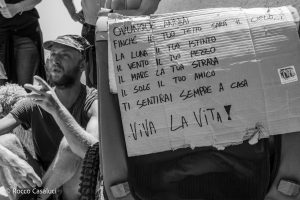 FINCHÉ IL TUO TETTO SARÀ IL CIELO
LA LUNA IL TUO ISTINTO
IL VENTO IL TUO MEZZO
IL MARE LA TUA STRADA
IL SOLE IL TUO AMICO
TI SENTIRAI SEMPRE A CASA
VIVA LA VITA!
© Rocco Casaluci